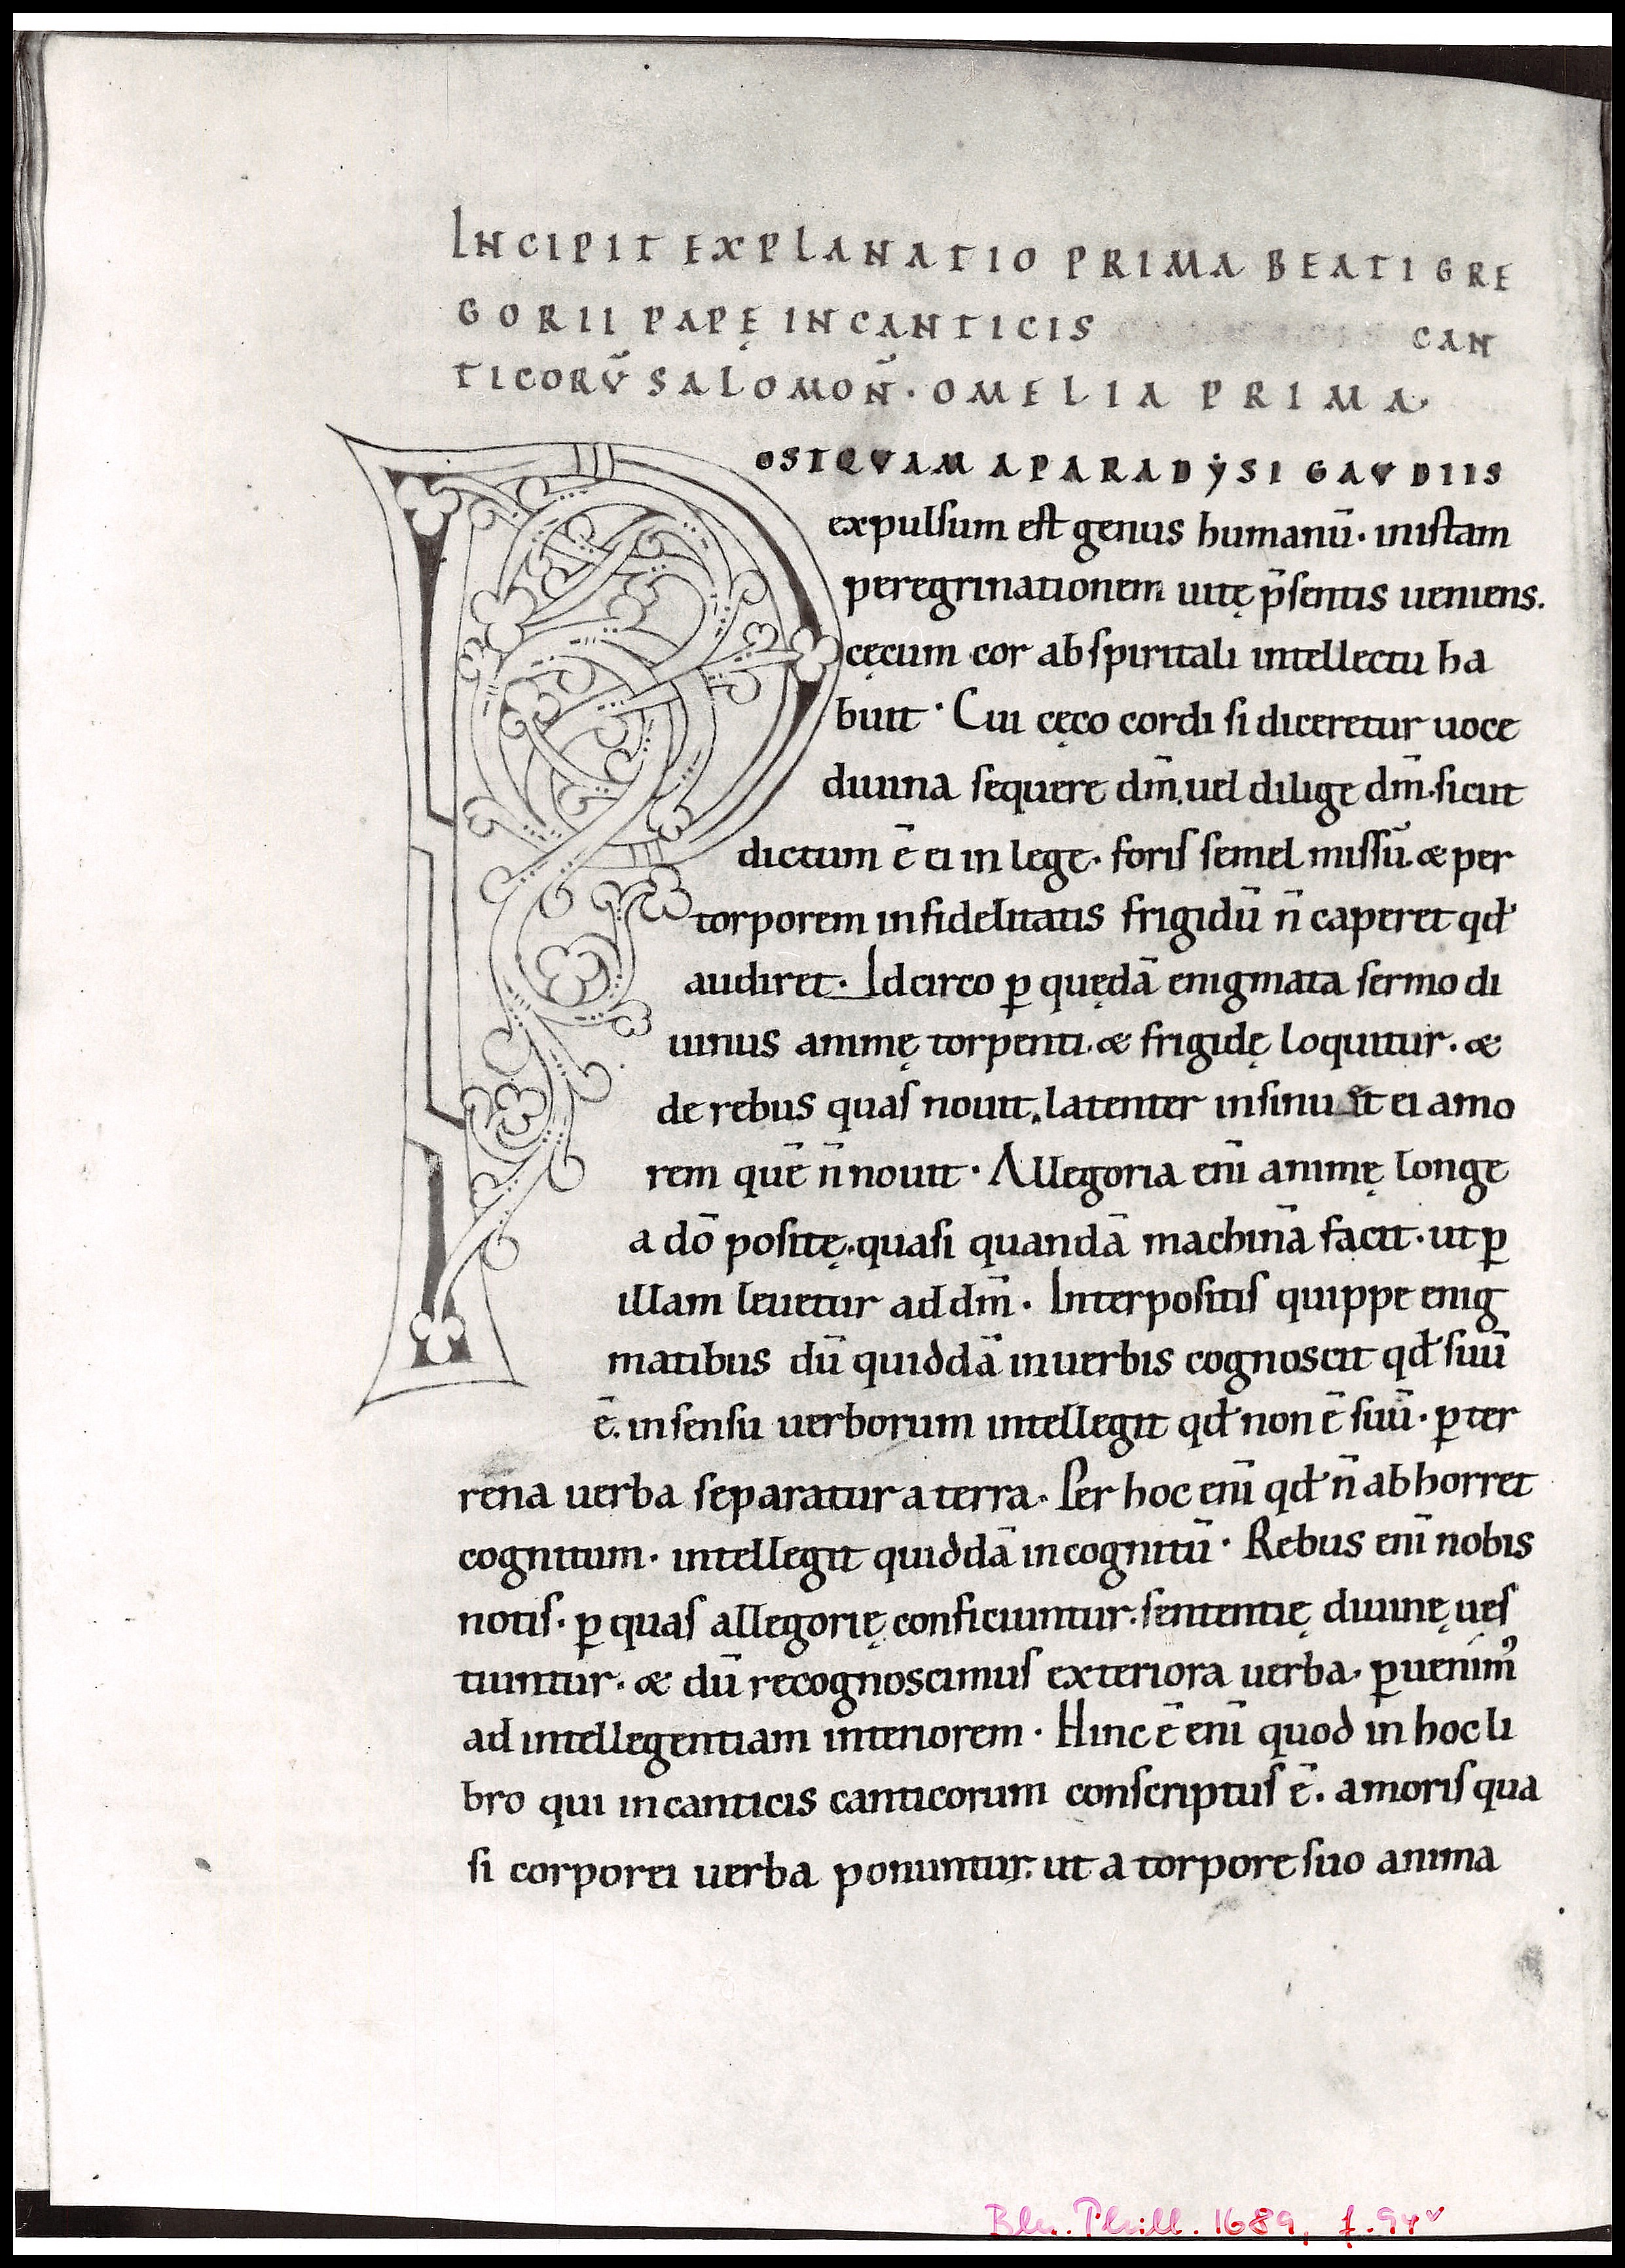 INCIPIT EXPLANATIO PRIMA BEATI GRE
GORII PAPĘ IN CANTICIS CAN
TICORV̄ SALOMON̄. OMELIA PRIMA.
POSTQVAM A PARADẎSI GAVDIIS
expulsum est genus humanū. in istam
peregrinationem uitę p̄sentis ueniens.
cęcum cor ab spiritali intellectu ha
buit. Cui cęco cordi si diceretur uoce
diuina sequere dm̄. uel dilige dm̄. sicut
dictum ē ei in lege. foris semel missū. & per
torporem infidelitatis frigidū n̄ caperet qđ
audiret. Idcirco ꝑ quędā enigmata sermo di
uinus animę torpenti. & frigidę loquitur. &
de rebus quas nouit. latenter insinuat ei amo
rem quē n̄ nouit. Allegoria eni̅ animę longe
a dō positę. quasi quandā machinā facit. ut ꝑ
illam leuetur ad dm̄. Interpositis quippe enig
matibus dū quiddā in uerbis cognoscit qđ suū
ē. in sensu uerborum intellegit qđ non ē suū. ꝑ ter
rena uerba separatur a terra. Per hoc eni̅ qđ n̄ abhorret
cognitum. intellegit quiddā incognitū. Rebus eni̅ nobis
notis. ꝑ quas allegorię conficiuntur. sententię diuinę ues
tiuntur. & dū recognoscimus exteriora uerba. ꝑuenimꝰ
ad intellegentiam interiorem. Hinc ē eni̅ quod in hoc li
bro qui in canticis canticorum conscriptus ē. amoris qua
si corporei uerba ponuntur. ut a torpore suo anima
Bln. Phill. 1689, f. 94v